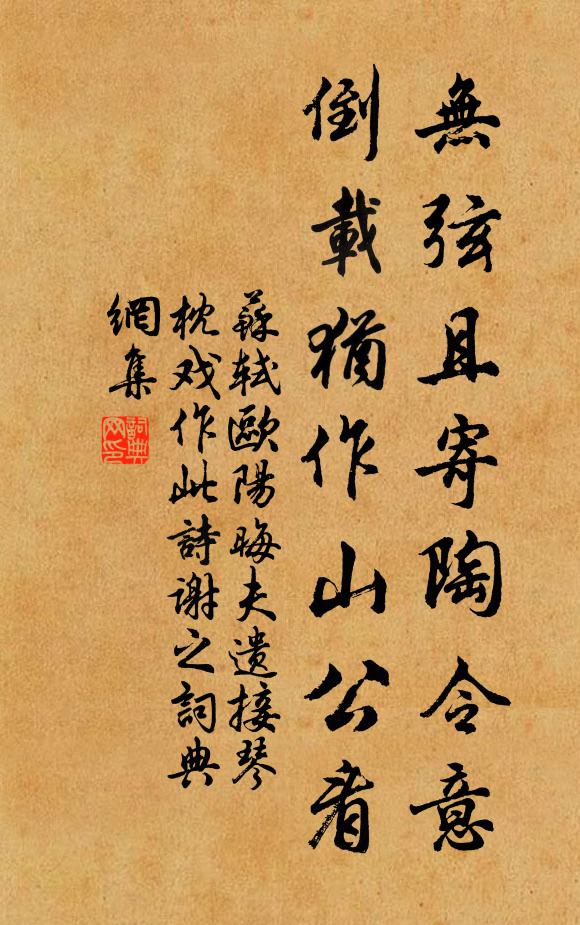 無弦且寄陶令意
倒載猶作山公看
蘇軾歐陽晦夫遺接琴
枕戏作此詩谢之詞典
網集
詞典
网印